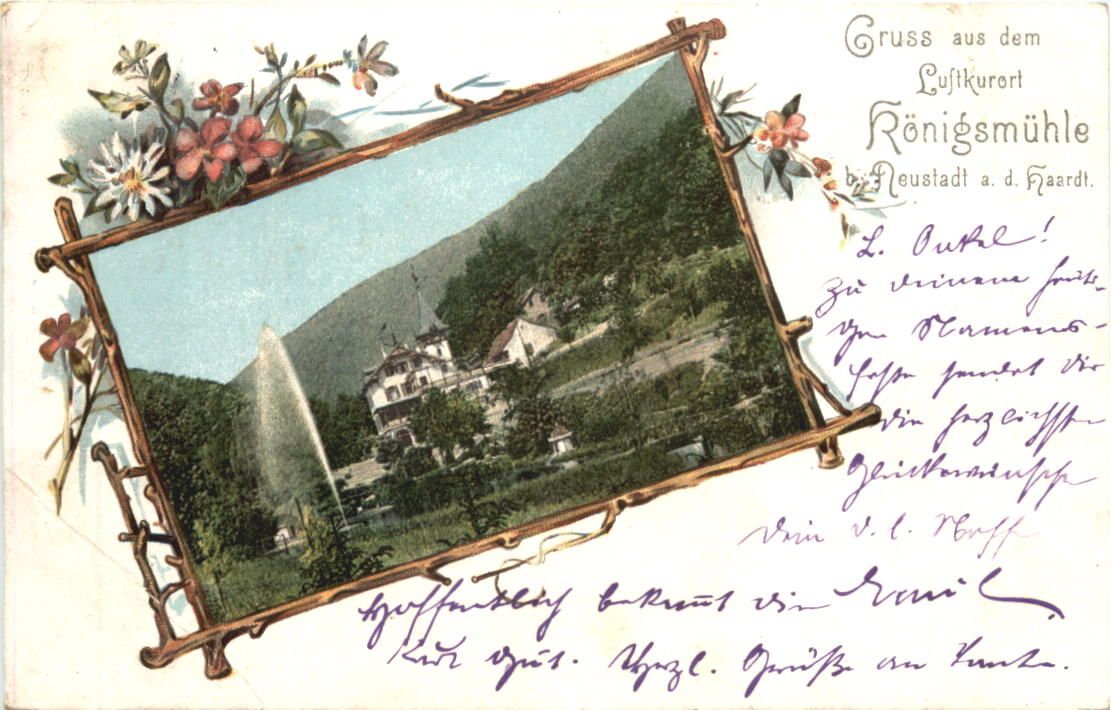 Gruss aus dem
Luftkurort
Königsmühle
b. Neustadt a. d. Haardt.
L. Onkel!
Zu deinem heuti-
gen Namens-
feste sendet dir
die herzlichsten
Glückwünsche
Dein d. l. Neffe
Hoffentlich bekommt die
Kur gut. Herzl. Grüße an Tante.